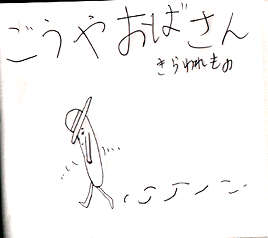 ごうやおばさん
きらわれもの